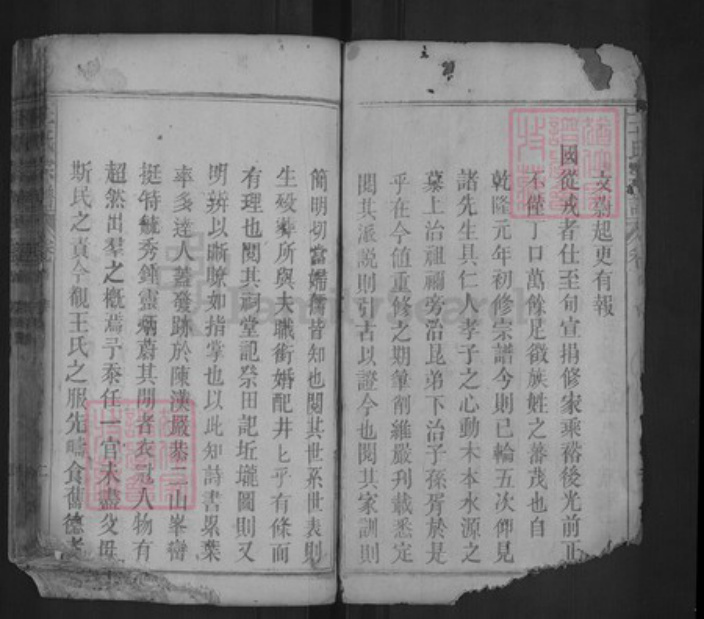 文蔚起更有報
國從戎者仕至旬宣捐修家乘裕後光前正
不僅丁口萬餘足徵族姓之蕃茂也自
乾隆元年初修宗譜今則已輪五次仰見
諸先生具仁人孝子之心動木本水源之
慕上治祖禰旁治昆弟下治子孫胥於是
乎在今値重修之期筆削維嚴刋載悉定
閱其派説則引古以證今也閱其家訓則
簡明切當婦孺皆知也閱其世系世表則
生歿葬所與夫職銜婚配井井乎有條而
有理也閱其祠堂記祭田記坵壠圖則又
明辨以晰瞭如指掌也以此知詩書累葉
率多達人蓋發跡於陳漢嚴恭三山峯巒
挺特毓秀鍾靈炳蔚其閒者衣冠人物有
超然出羣之概焉予忝任一官未盡父毋
斯民之責今觀王氏之服先疇食舊德者
FamilySearch